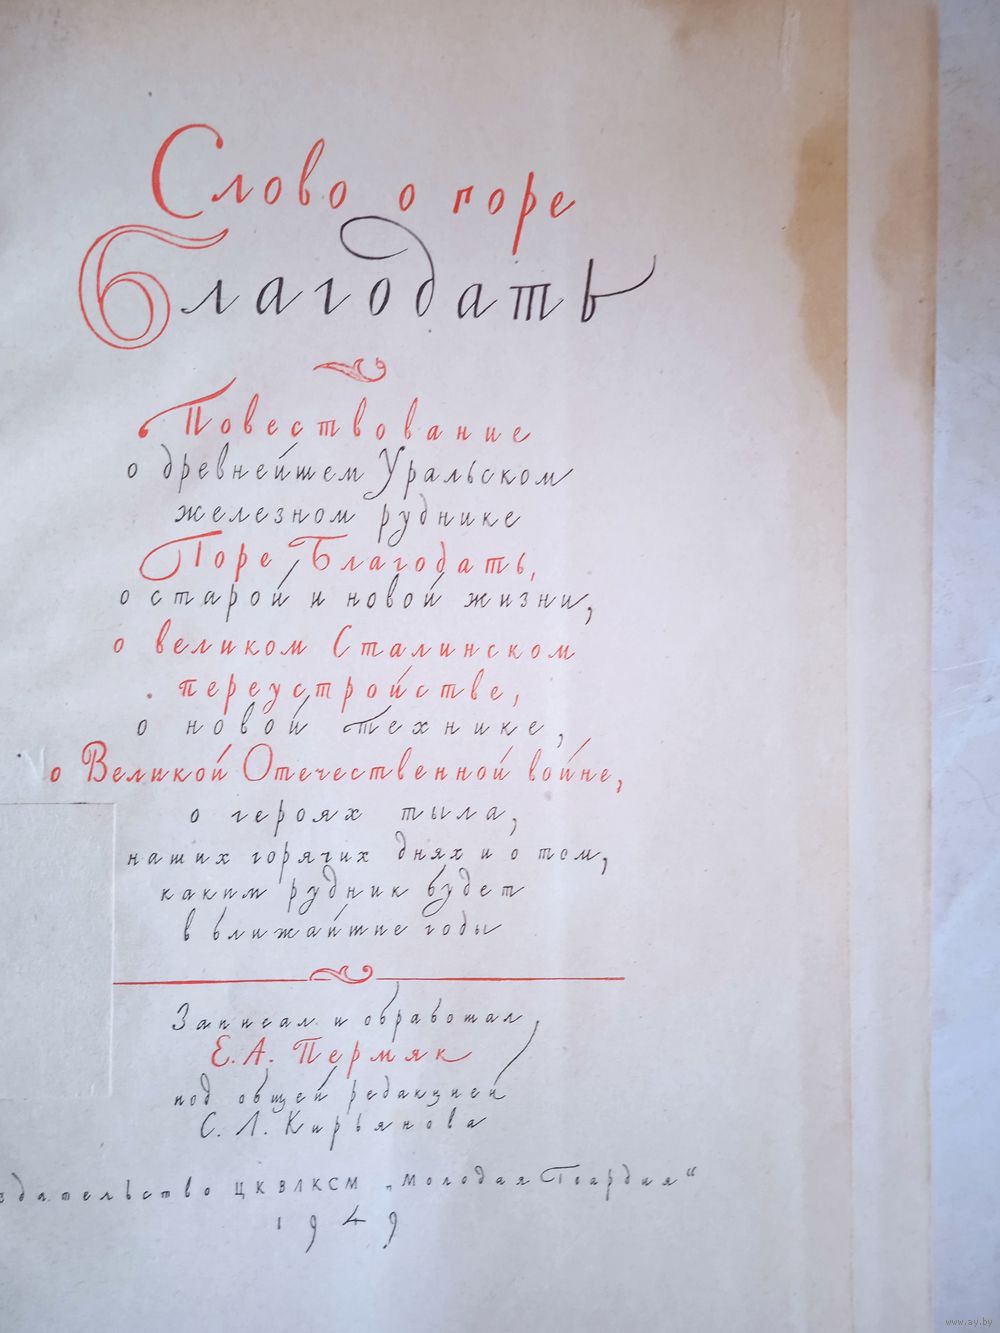 Слово о горе
Благодать
Повествование
о древнейшем Уральском
железном руднике
Горе Благодать,
о старой и новой жизни,
о великом Сталинском
переустройстве,
о новой технике,
о Великой Отечественной войне,
о героях тыла,
наших горячих днях и о том,
каким рудник будет
в ближайшие годы
Записал и обработал
Е. А. Пермяк
под общей редакцией
С. Л. Кирьянова
здательство ЦК ВЛКСМ „Молодая Гвардия“
1949
www.ay.by